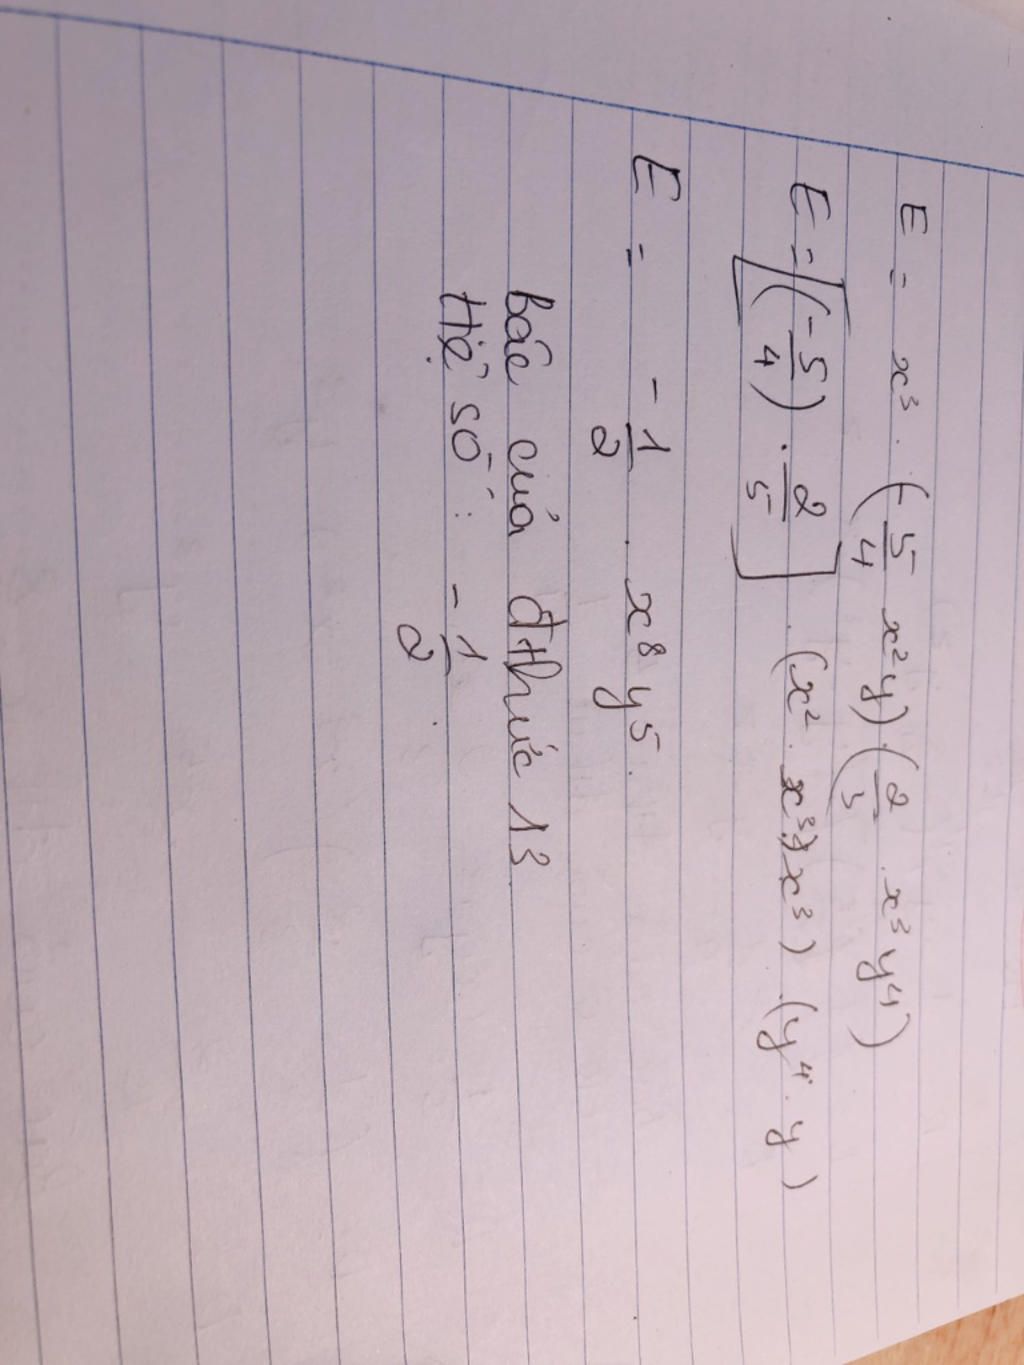 E = x³ . (-5/4 x²y) . (2/5 . x³y⁴)
E = [(-5/4) . 2/5] . (x² . x³ . x³) . (y⁴ . y)
E = -1/2 . x⁸y⁵.
bâc của đthức 13
Hệ số : -1/2 .